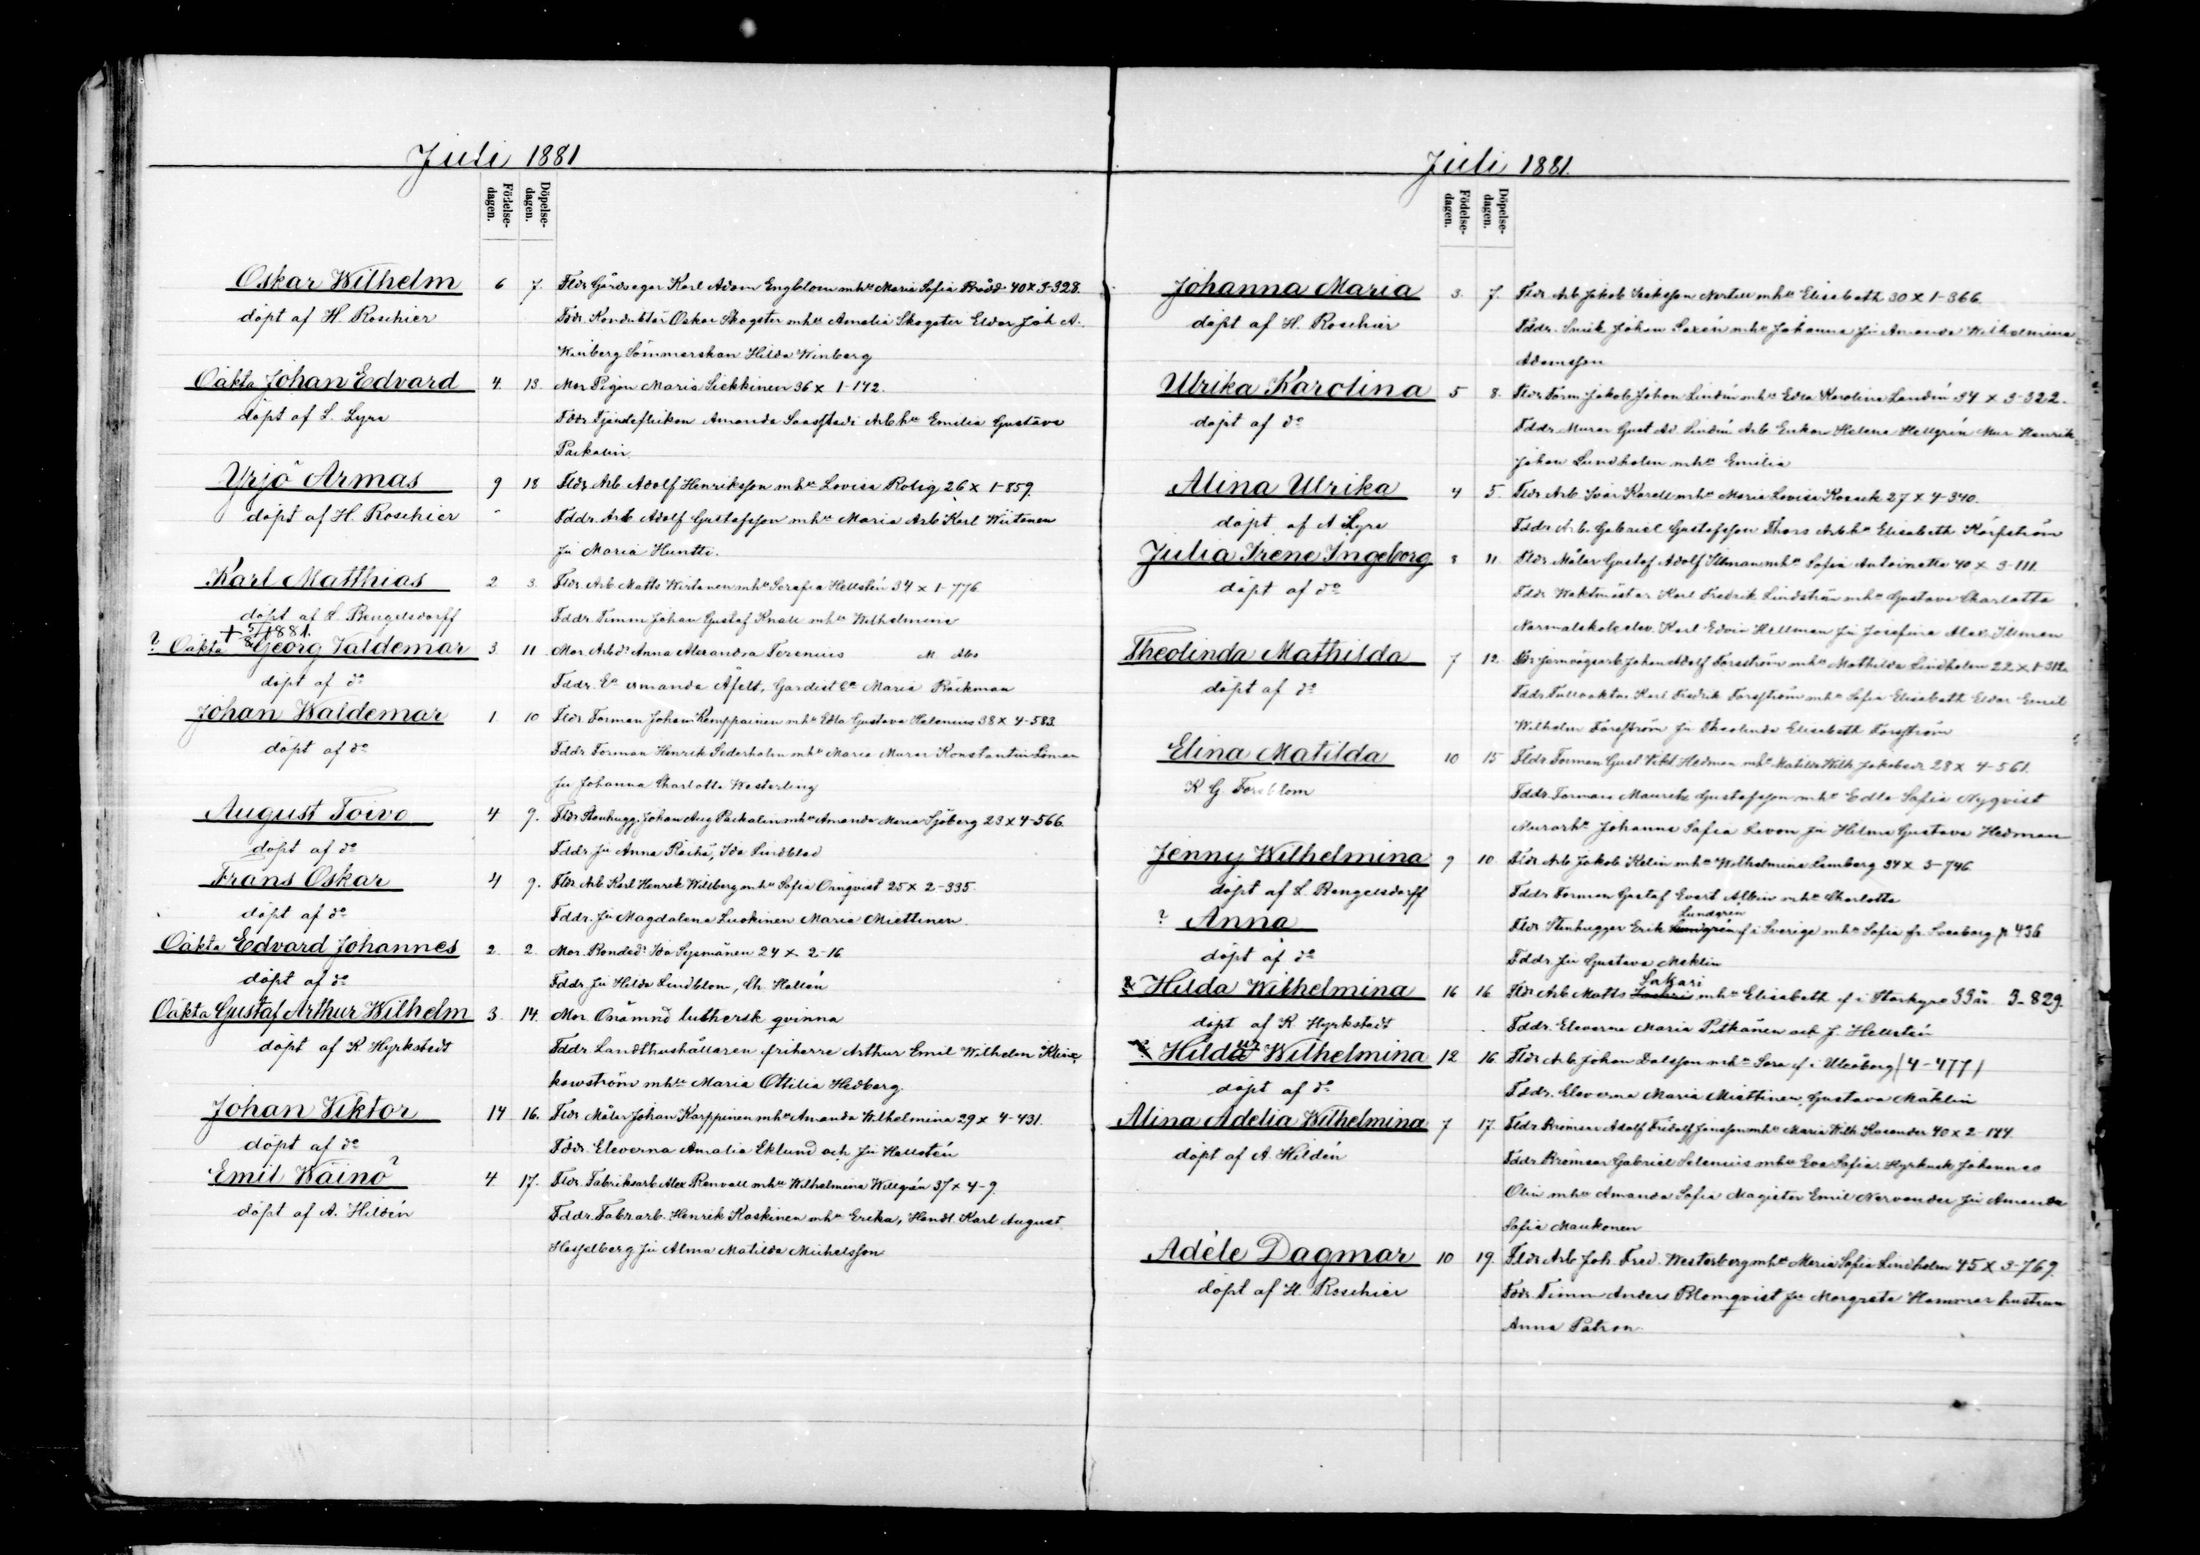 Juli 1881
Födelse-
dagen.
Döpelse-
dagen.
Oskar Wilhelm 6 7. Fldr Gårdsegar Karl Adam Engblom mhu Maria Sofia 40 x 3-328.
döpt af H. Roschier Fddr. Konduktör Oskar Skogster mhu Amalia Skogster Eldar Joh A.
Winberg Sömmerskan Hilda Winberg
Oäkta Johan Edvard 4. 13. Mor Pigan Maria Siekkinen 36 x 1-142.
döpt af L. Lyra Fddr Tjensteflickan Amanda Arbhu Emilia Gustava
Packalin
Yrjö Armas 9 18 Fldr Arb Adolf Henriksson mhu Lovisa Rolig 26 x 1-859.
döpt af H. Roschier Fddr. Arb Adolf Gustafsson mhu Maria Arb Karl Wiitanen
Ju Maria Huntti.
Karl Matthias 2 3. Fldr Arb Matts Wirtanen mhu Serafia Hellstén 34 x 1-776
döpt af L. Bengelsdorff Fddr Timm Johan Gustaf Knall mhu Wilhelmina
+ 5/8 1881.
? Oäkta Georg Valdemar 3. 11 Mor Arbd. Anna Alexandra Terenius M Abo
döpt af do Fddr. Ea Amanda Åfelt, Gardist Ea Maria Räckman
Johan Waldemar 1 10 Fldr Forman Johan Kemppainen mhu Edla Gustava Helenius 38 x 4-583.
döpt af do Fddr Forman Henrik Söderholm mhu Maria Murar Konstantin Loman
Ju Johanna Charlotta Westerling
August Toivo 4 9. Fldr Stenhugg. Johan Aug Packalin mhu Amanda Maria Sjöberg 23 x 4-566.
döpt af do Fddr Ju Anna Räihä, Ida Lindblad
Frans Oskar 4 9. Fldr Arb Karl Henrik Willberg mhu Sofia Örnqvist 25 x 2-335.
döpt af do Fddr. Ju Magdalena Luokinen Maria Miettinen.
Oäkta Edvard Johannes 2. 2. Mor. Bonded. Ida Sysmänen 24 x 2-16
döpt af do Fddr Ju Hilda Lindblom, Ch. Hallén
Oäkta Gustaf Arthur Wilhelm 3. 14. Mor Onämnd luthersk qvinna
döpt af K Hyrkstedt Fddr Landthushållaren friherre Arthur Emil Wilhelm Klinc
kowström mhu Maria Ottilia Hedberg.
Johan Viktor 14 16. Fldr Målar Johan Karppinen mhu Amanda Wilhelmina 29 x 4-431.
döpt af do Fddr. Eleverna Amalia Eklund och Ju Hellstén
Emil Wäinö? 4 17. Fldr. Fabriksarb Alex Renvall mhu Wilhelmina Willgrén 37 x 4-9.
döpt af A. Hildén Fddr. Fabr.arb. Henrik Koskinen mhu Erika, Handl. Karl August
Hasselberg Ju Alma Matilda Michelsson
Juli 1881.
Födelse-
dagen.
Döpelse-
dagen.
Johanna Maria 3. 7. Fldr Arb Jakob Isaksson Nortell mhu Elisabeth 30 x 1-366.
döpt af H. Roschier Fddr. Smik Johan Saxén mhu Johanna Ju Amanda Wilhelmina
Adamsson
Ulrika Karolina 5 8. Fldr Form Jakob Johan Lindén mhu Edla Karolina Landén 34 x 3-322.
döpt af do Fddr Murar Gust Ad Lindén Arb Enkan Helena Hellgrén Mur Henrik
Johan Lundholm mhu Emilia
Alina Ulrika 4 5. Fldr Arb. Ivar Kardell mhu Maria Lovisa 27 x 4-340.
döpt af A Lyra Fddr Arb. Gabriel Gustafsson Thors Arbhu Elisabeth Korpström
Julia Irene Ingeborg 8 11. Fldr Målar Gustaf Adolf Illman mhu Sofia Antoinetta 40 x 3-111.
döpt af do Fddr Waktmästar Karl Fredrik Lindström mhu Gustava Charlotta
Normalskolelev. Karl Edvin Hellman Ju Josefina Alex. Illman
Theolinda Mathilda 7 12. Fldr Jernvägsarb Johan Adolf Forsström mhu Mathilda Lindholm 22 x 1-312.
döpt af do Fddr Tullvaktm Karl Fredrik Forsström mhu Sofia Elisabeth Eldar Emil
Wilhelm Forsström Ju Theolinda Elisabeth Forsström
Elina Matilda 10 15 Fldr Forman Gust Vikt Hedman mhu Matilda Wilh. Jakobsdr 28 x 4-561.
K G. Forsblom Fddr. Forman Mauritz Gustafsson mhu Edla Sofia Nyqvist
Murarhu Johanna Sofia Levon Ju Hilma Gustava Hedman
Jenny Wilhelmina 9 10. Fldr Arb Jakob Kelin mhu Wilhelmina Lemberg 34 x 3-746.
döpt af L. Bengelsdorff Fddr Forman Gustaf Evert Albin mhu Charlotta
? Anna Fldr Stenhuggar Erik Lundgrén f i Sverige mhu Sofia fr. Sveaborg p 436
döpt af do Fddr Ju Gustava Meklin
Hilda Wilhelmina 16 16 Fldr Arb Matts Sakari mhu Elisabeth f i Storkyro 33 år 3-829.
döpt af K Hyrkstedt Fddr. Eleverna Maria Pitkänen och J. Hellstén
Hilda Wilhelmina 12 16 Fldr Arb Johan Dalsson mhu Sara f i Uleåborg (4-477)
döpt af do Fddr. Eleverna Maria Miettinen, Gustava Mäklin
Alina Adelia Wilhelmina 7 17. Fldr Bromsar Adolf Fridolf Jonsson mhu Maria Wilh Kasander 40 x 2-144.
döpt af A. Hildén Fddr Bromsar Gabriel Selenius mhu Eva Sofia, Hyrkusk Johannes
Olin mhu Amanda Sofia Magister Emil Nervander Ju Amanda
Sofia Maukonen
Adéle Dagmar 10 19. Fldr Arb Joh. Fred. Westerberg mhu Maria Sofia Lindholm 45 x 3-769.
döpt af H. Roschier Fddr. Timm Anders Blomqvist Ju Margreta Hammar hustrun
Anna Patron